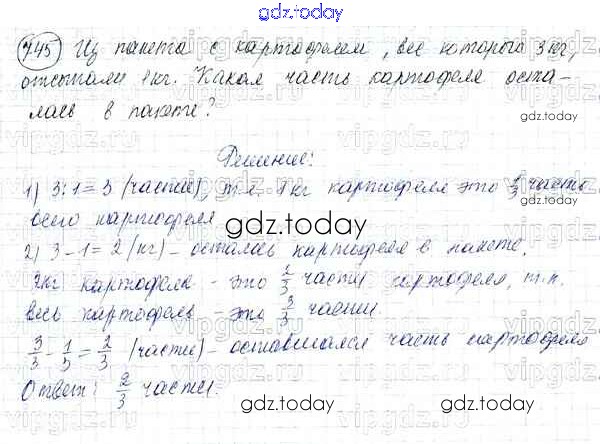 gdz.today
745) Из пакета с картофелем, вес которого 3 кг,
отсыпали 1 кг. Какая часть картофеля оста-
лась в пакете?
gdz.today
Решение:
1) 3:1=3 (части), т.к. 1 кг картофеля это 1/3 часть
всего картофеля
gdz.today
2) 3-1=2 (кг) - осталось картофеля в пакете.
2кг картофеля - это 2/3 части картофеля, т.к.
весь картофель - это 3/3 части.
3/3 - 1/5 = 2/3 (части) - оставшаяся часть картофеля
Ответ: 2/3 части.
gdz.today
gdz.today